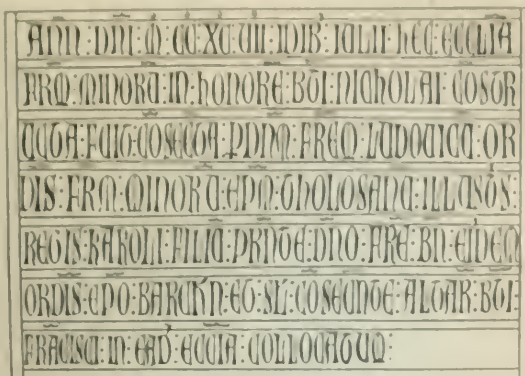 ANN : DNI : M : CC : XC : VII : IDIB' : IULII : HEC : ECCLIA
FRM : MINORU : IN : HONORE : BTI : NICHOLAI : COSTR
UCTA : FUIT : COSECTA : P DNM : FREM : LUDOVICU : OR
DIS : FRM : MINORU : EPM : THOLOSANU : ILLUSTS :
REGIS : KAROLI : FILIU : PRNTE : DNO : FRE : BN : EIDEM
ORDIS : EPO : BARCHN : ET : SL' : COSECNTE : ALTAR : BTI :
FRACISCI : IN : EAD' : ECCIA : COLLOCATUM :